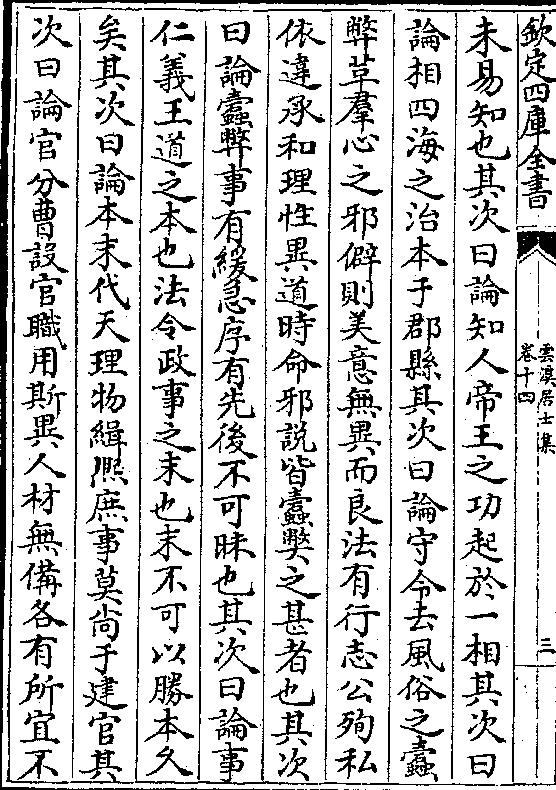 欽定四庫全書
雲溪居士集
卷十四
三
未易知也其次曰論知人帝王之功起於一相其次曰
論相四海之治本于郡縣其次曰論守令去風俗之蠹
弊革羣心之邪僻則美意無異而良法有行志公殉私
依違承和理性異道時命邪說皆蠹獘之甚者也其次
曰論蠹弊事有緩急序有先後不可昧也其次曰論事
仁義王道之本也法令政事之末也末不可以勝本久
矣其次曰論本末代天理物緝熈庶事莫尚于建官其
次曰論官分曹設官職用斯異人材無備各有所宜不